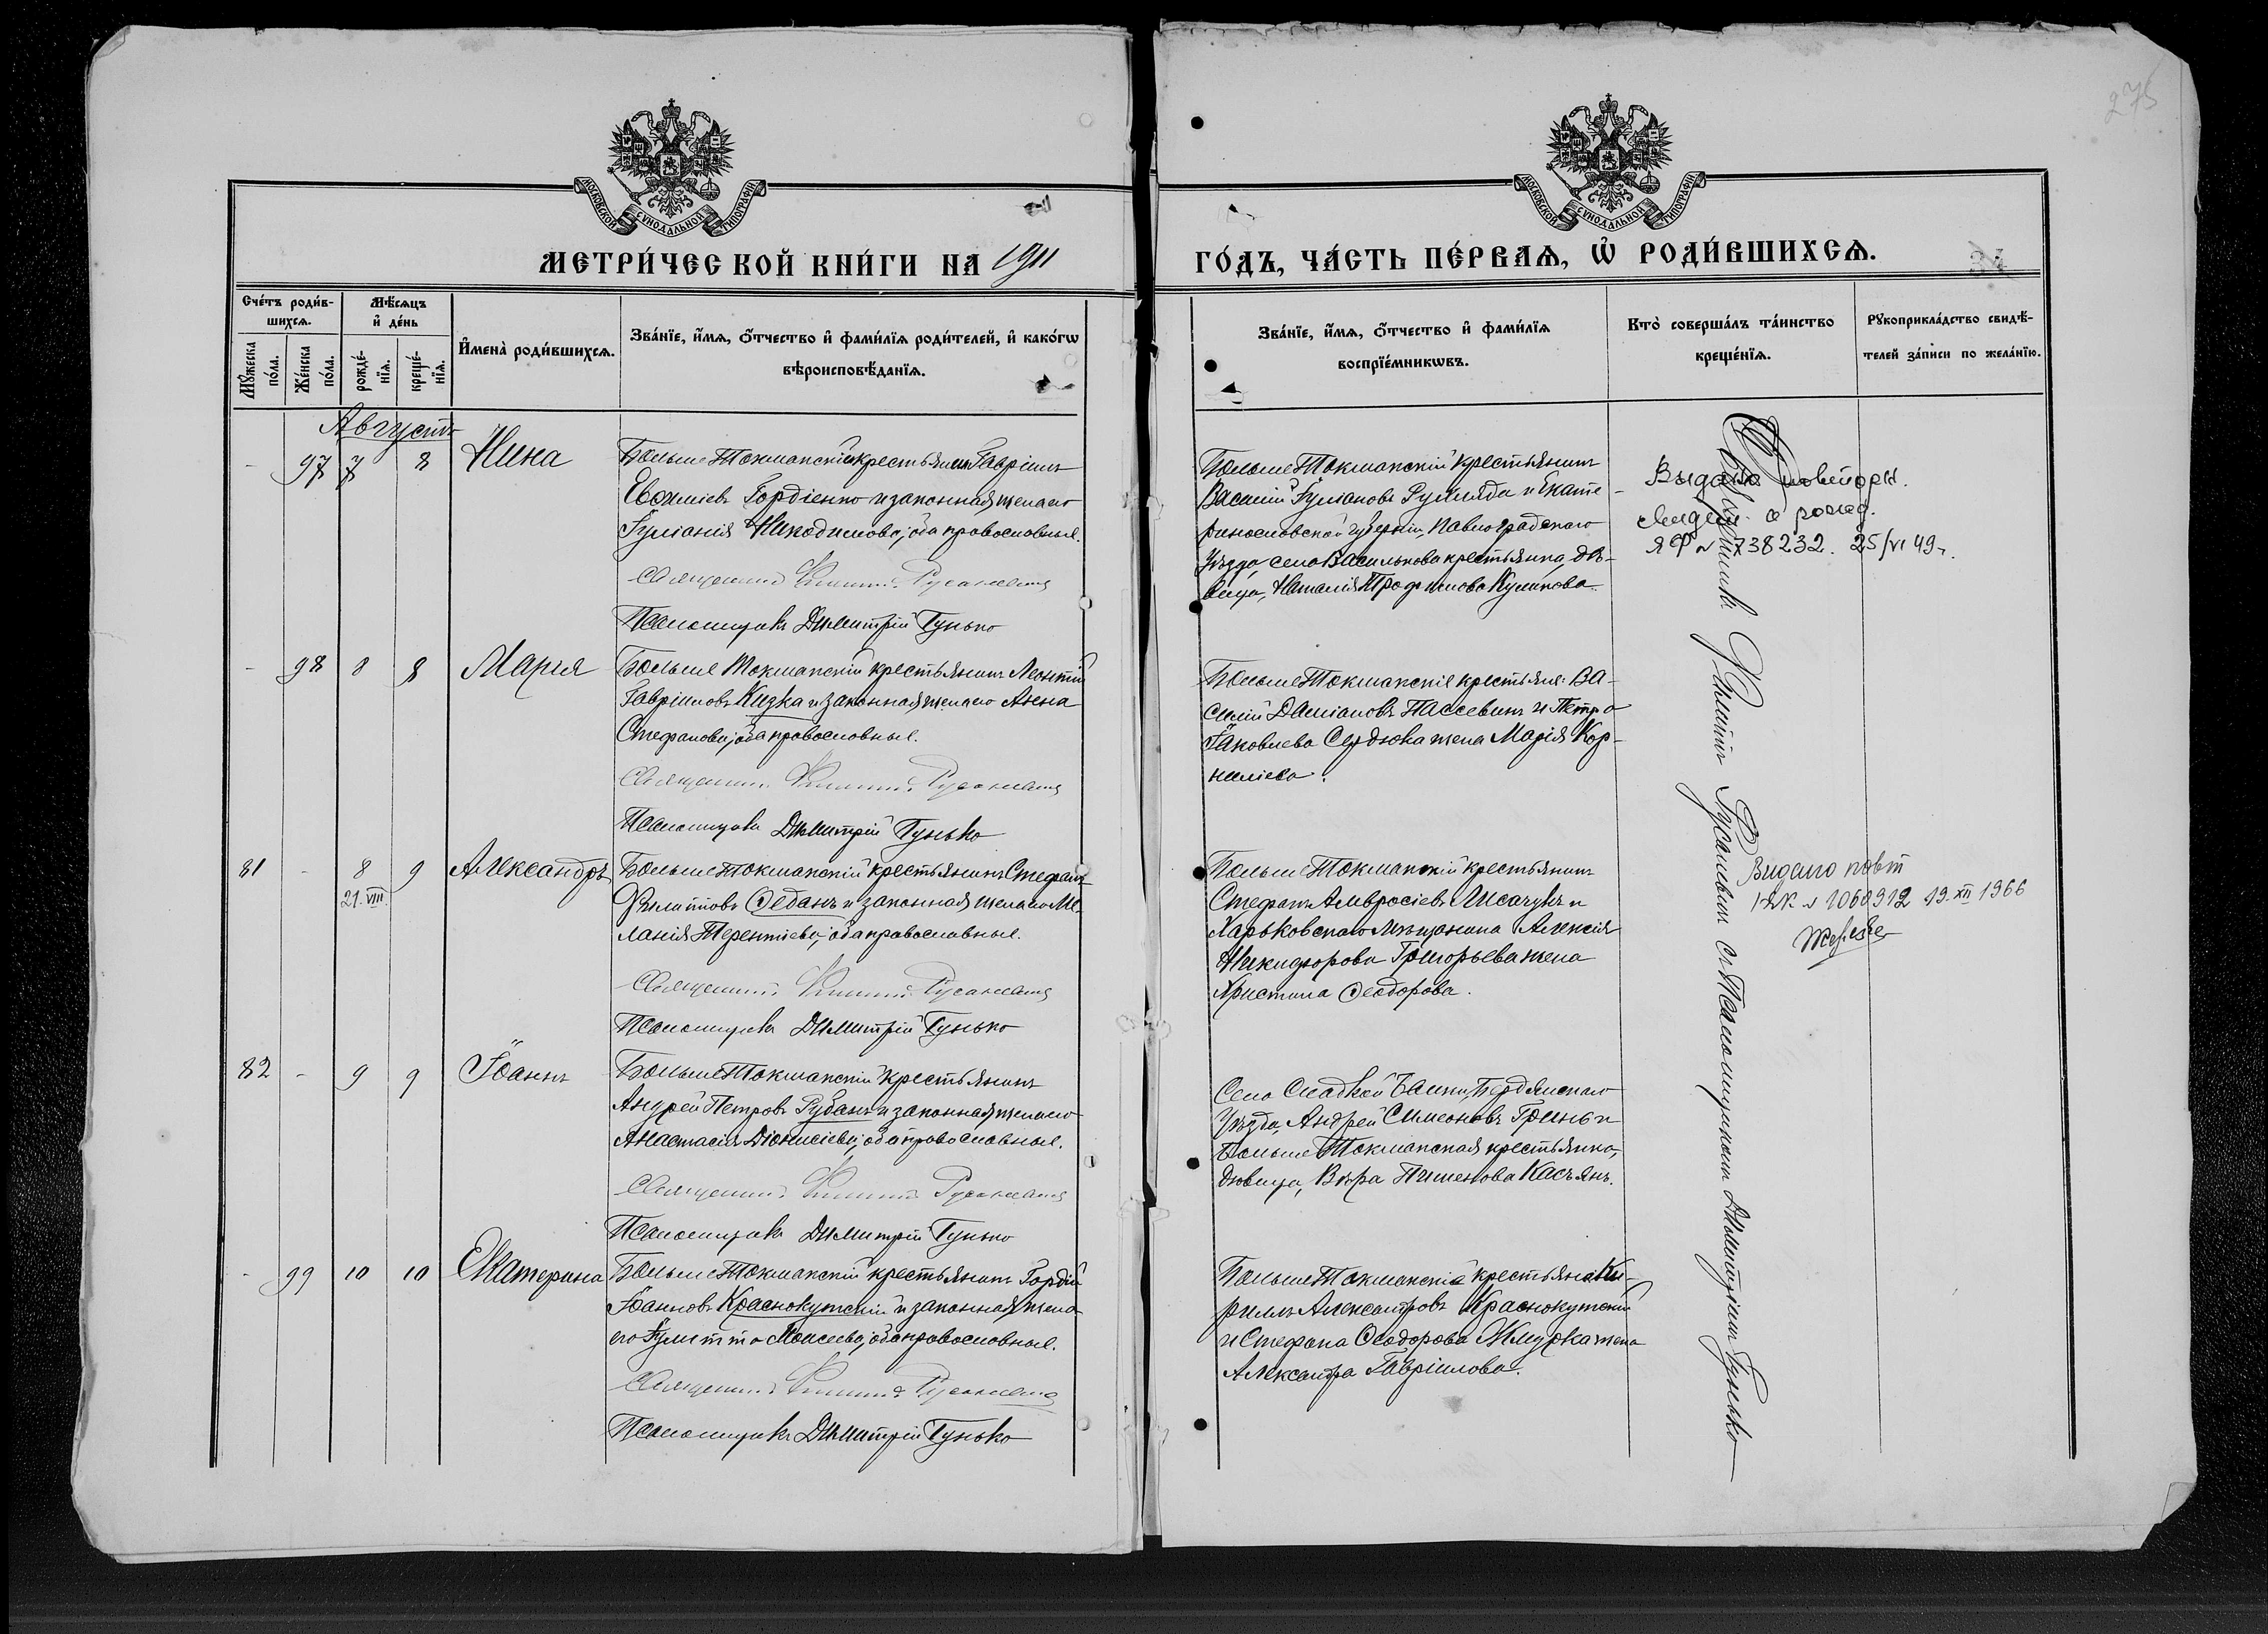 275
МОСКОВСКОЙ СѴНОДАЛЬНОЙ ТИПОГРАФІИ
МОСКОВСКОЙ СѴНОДАЛЬНОЙ ТИПОГРАФІИ
МЕТРИ́ЧЕСКОЙ КНИ́ГИ НА 1911
ГО́ДЪ, ЧА́СТЬ ПЕ́РВАѦ, Ѡ҆ РОДИ́ВШИХСѦ.
Сче́тъ роди́в-
шихсѧ.
Мꙋ́жеска по́ла.
Же́нска по́ла.
Мѣ́сѧцъ
и҆ де́нь
рожде́-нїѧ.
креще́-нїѧ.
И҆мена̀ роди́вшихсѧ.
Зва́нїе, и҆́мѧ, ѻ҆́тчество и҆ фами́лїѧ роди́телей, и҆ како́гѡ
вѣроисповѣ́данїѧ.
Зва́нїе, и҆́мѧ, ѻ҆́тчество и҆ фами́лїѧ
воспрїе́мникѡвъ.
Кто̀ соверша́лъ та́инство
креще́нїѧ.
Рꙋкоприкла́дство свидѣ́-
телей за́писи по жела́нїю.
Августъ
- 97 7 8 Нина
Больше Токмакскій крестьянинъ Гавріилъ
Евѳиміевъ Гордіенко и законная жена его
Іуліанія Никодимова, оба православные.
Священникъ Филиппъ Русаневичъ
Псаломщикъ Димитрій Гунько
Больше Токмакскій крестьянинъ
Василій Іуліановъ и Екате-
ринославской губерніи, Павлоградскаго
уѣзда, села Василькова крестьянка, дѣ-
вица, Наталія Трофимова Куликова.
Выдано повторн.
свидет. о рожд.
ЯФ № 738232. 25/VI 49 г.
- 98 8 8 Марія
Больше Токмакскій крестьянинъ Леонтій
Гавріиловъ Кизка и законная жена его Анна
Стефанова, оба православные.
Священникъ Филиппъ Русаневичъ
Псаломщикъ Димитрій Гунько
Больше Токмакскіе крестьяне: Ва-
силій Даміановъ Пассевинъ и Петра
Іаковлева Сердюка жена Марія Кор-
ниліева.
81 - 8 9 Александръ
21.VIII.
Больше Токмакскій крестьянинъ Стефанъ
Филипповъ Седанъ и законная жена его Ме-
ланія Терентіева, оба православные.
Священникъ Филиппъ Русаневичъ
Псаломщикъ Димитрій Гунько
Больше Токмакскій крестьянинъ
Стефанъ Амвросіевъ Лисачукъ и
Харьковскаго мѣщанина Алексія
Никифорова Григорьева жена
Христина Ѳеодорова.
Видано повт
№ 1060912 19.XII 1966
82 - 9 9 Іоаннъ
Больше Токмакскій крестьянинъ
Андрей Петровъ Рубанъ и законная жена его
Анастасія Діонисіева, оба православные.
Священникъ Филиппъ Русаневичъ
Псаломщикъ Димитрій Гунько
Села Сладкой Балки, Бердянскаго
уѣзда, Андрей Симеоновъ Гринь и
Больше Токмакская крестьянка,
дѣвица, Вѣра Пименова Касьянъ.
- 99 10 10 Екатерина
Больше Токмакскій крестьянинъ Гордій
Іоанновъ Краснокутскій и законная жена
его Іулитта Моисеева, оба православные.
Священникъ Филиппъ Русаневичъ
Псаломщикъ Димитрій Гунько
Больше Токмакскіе крестьяне: Ки-
риллъ Александровъ Краснокутскій
и Стефана Ѳеодорова Жмурка жена
Александра Гавріилова.
Священникъ Филиппъ Русаневичъ съ Псаломщикомъ Димитріемъ Гунько